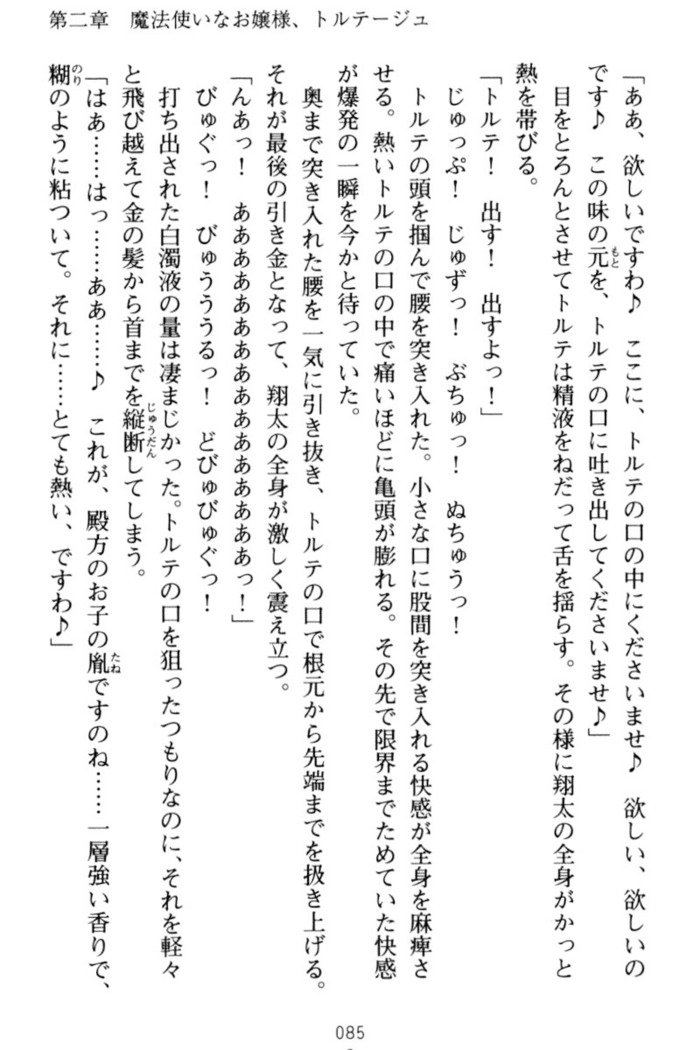 第二章　魔法使いなお嬢様、トルテージュ
「ああ、欲しいですわ♪　ここに、トルテの口の中にくださいませ♪　欲しい、欲しいの
です♪　この味の元を、トルテの口に吐き出してくださいませ♪」
目をとろんとさせてトルテは精液をねだって舌を揺らす。その様に翔太の全身がかっと
熱を帯びる。
「トルテ！　出す！　出すよっ！」
じゅっぷ！　じゅずっ！　ぶちゅっ！　ぬちゅうっ！
トルテの頭を掴んで腰を突き入れた。小さな口に股間を突き入れる快感が全身を麻痺さ
せる。熱いトルテの口の中で痛いほどに亀頭が膨れる。その先で限界までためていた快感
が爆発の一瞬を今かと待っていた。
奥まで突き入れた腰を一気に引き抜き、トルテの口で根元から先端までを扱き上げる。
それが最後の引き金となって、翔太の全身が激しく震え立つ。
「んあっ！　あああああああああああああああぁっ！」
びゅぐっ！　びゅうううるっ！　どびゅびゅぐっ！
打ち出された白濁液の量は凄まじかった。トルテの口を狙ったつもりなのに、それを軽々
と飛び越えて金の髪から首までを縦断してしまう。
「はあ……はっ……ああ……♪　これが、殿方のお子の胤ですのね……一層強い香りで、
糊のように粘ついて。それに……とても熱い、ですわ♪」
085